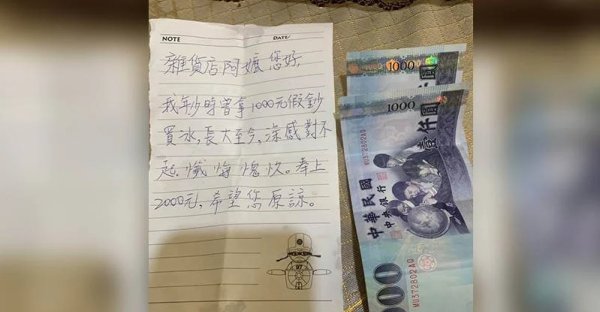 NOTE DATE/
雜貨店阿嬤您好
我年少時曾拿1000元假鈔
買水,長大至今,深感對不
起,懺悔愧疚。奉上
2000元,希望您原諒。
97
1000
1000
壹仟圓
中華民國
中央銀行
WU372802AQ
WU372802AQ
000